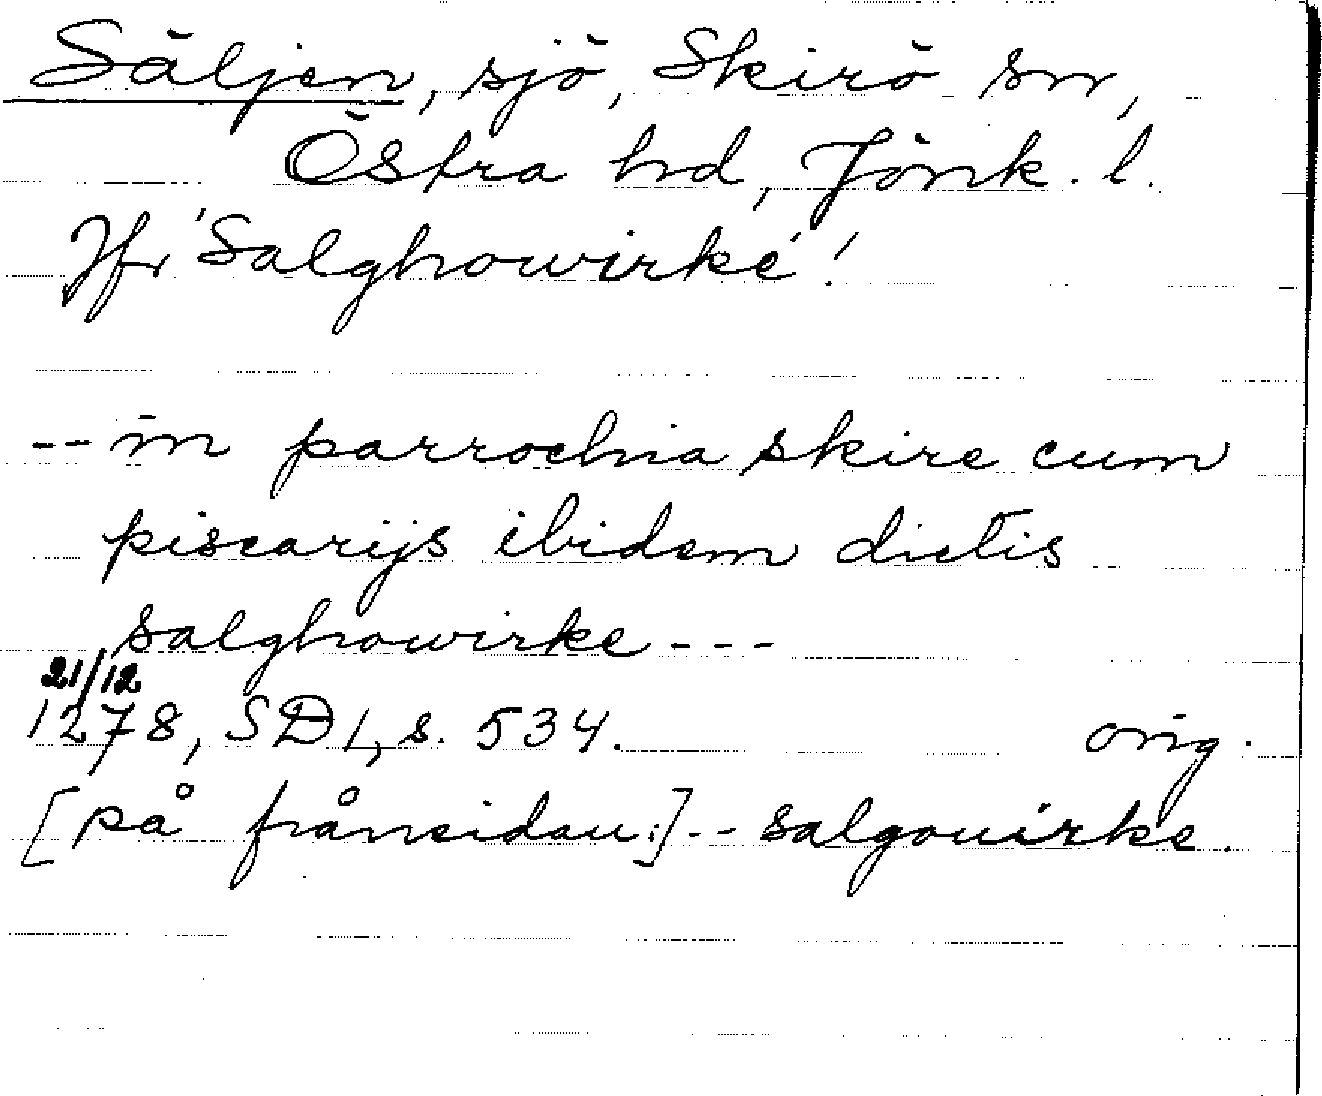 Säljen, sjö, Skirö sn,
Östra hd, Jönk. l.
Jfr 'Salghowirke'!
-- in parrochia skire cum
piscarijs ibidem dictis
salghowirke ---
21/12
1278, SD 1, s. 534. orig.
[på frånsidan:] -- salgouirke.